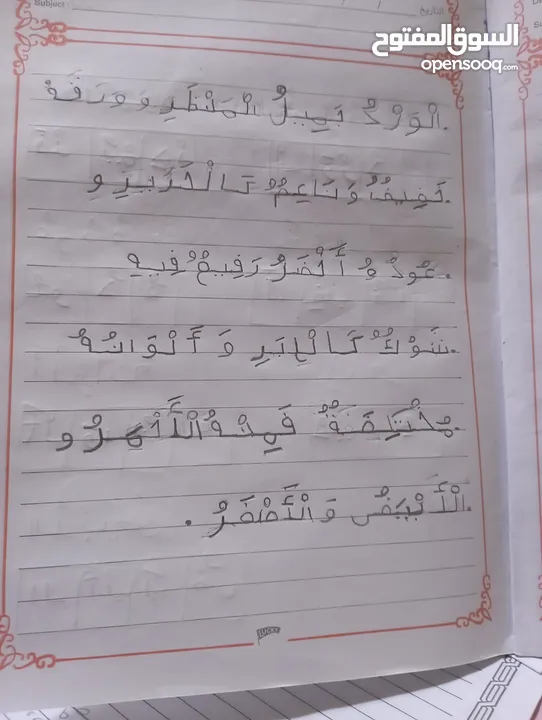 Subject:
التاريخ
السوق المفتوح
opensooq.com
.الْوَرْدُ جَمِيلُ الْمَنْظَرِ وَ وَرَقَهُ
.خَفِيفٌ وَ نَاعِمٌ كَالْحَرِيرِ وِ
.عُودُهُ أَخْضَرُ رَفِيعٌ فِيهِ
.شَوْكٌ كَالْإِبَرِ وَ أَلْوَانُهُ
.مُخْتَلِفَةٌ فَمِنْهُ الْأَحْمَرُ و
.الْأَبْيَضُ وَالْأَصْفَرُ .